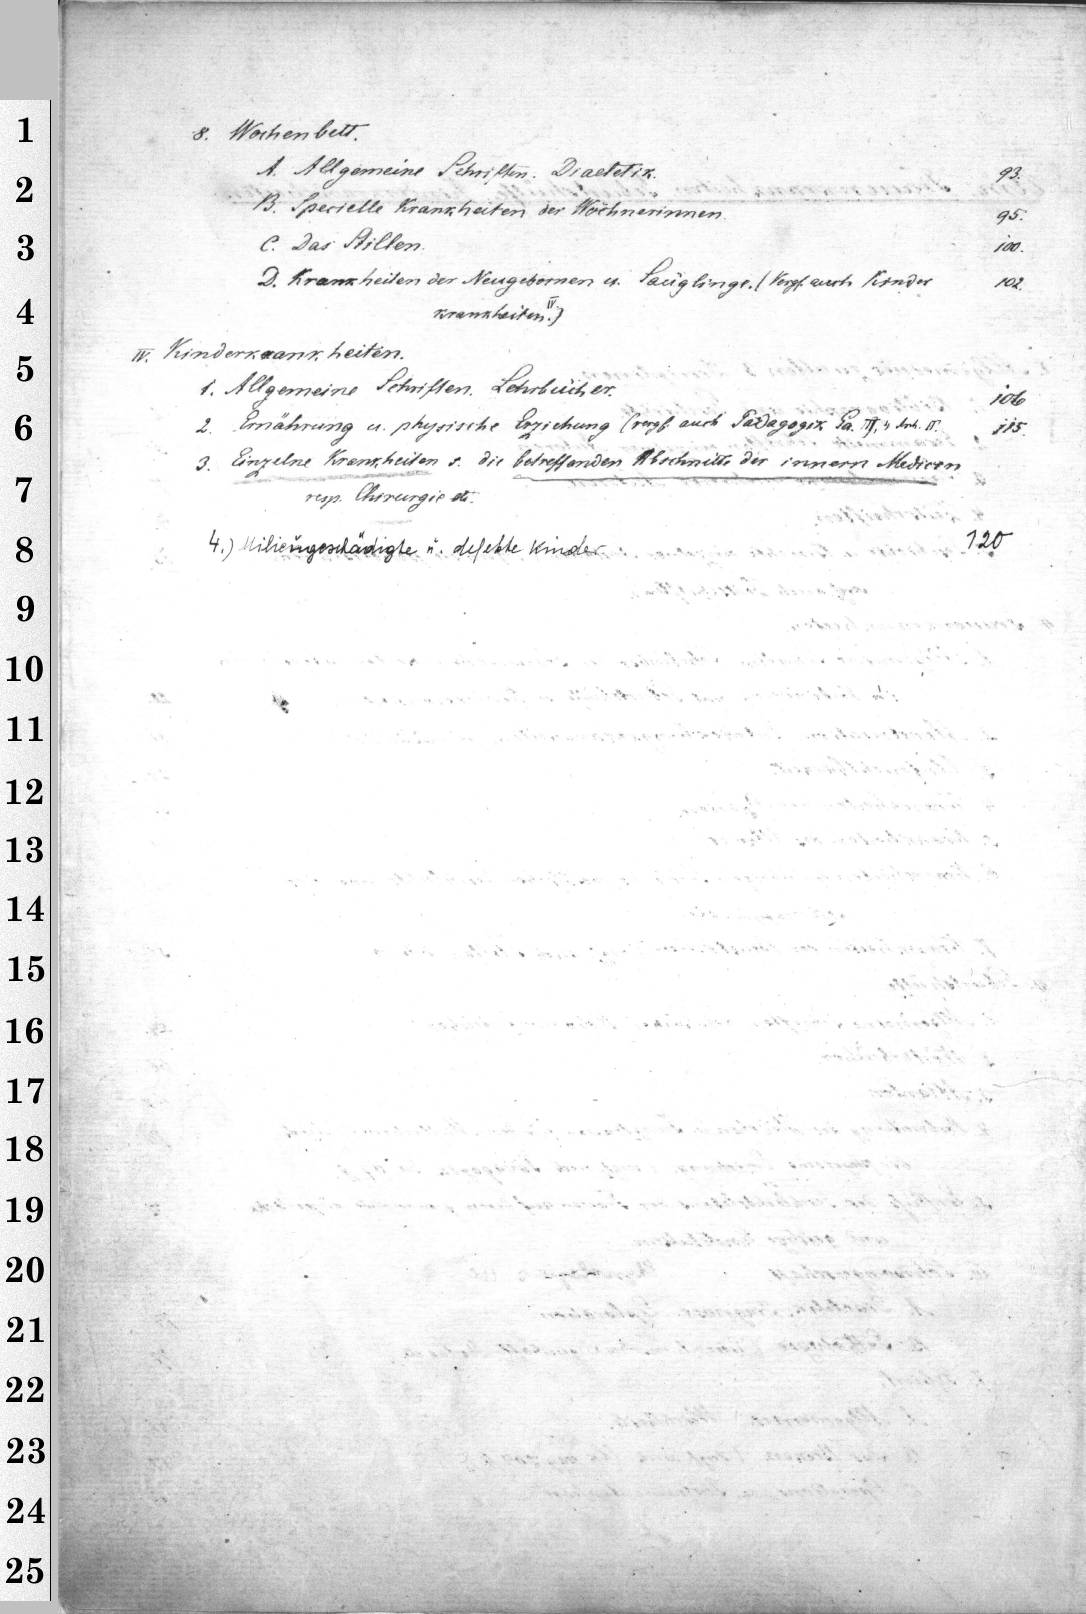 8. Wochenbett.
A. Allgemeine Schriften. Diaetetik. 93.
B. Specielle Krankheiten der Wöchnerinnen. 95.
C. Das Stillen. 100.
D. Krankheiten der Neugebornen u. Säuglinge. (Vergl. auch Kinder 102.
krankheiten IV.)
IV. Kinderkrankheiten.
1. Allgemeine Schriften. Lehrbücher. 106
2. Ernährung u. physische Erziehung (vergl. auch Pädagogik Pa. 115
3. Einzelne Krankheiten s. die betreffenden Abschnitte der innern Medicin
resp. Chirurgie etc.
4.) Milieugeschädigte u. defekte Kinder 120
1
2
3
4
5
6
7
8
9
10
11
12
13
14
15
16
17
18
19
20
21
22
23
24
25